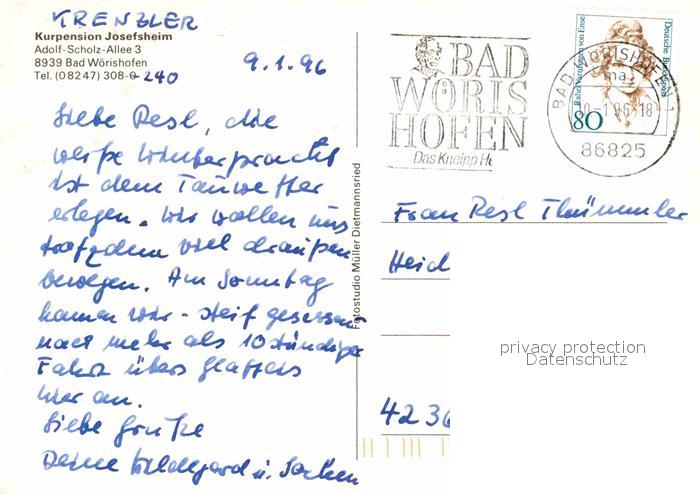 KRENZLER
Kurpension Josefsheim
Adolf-Scholz-Allee 3
8939 Bad Wörishofen
Tel. (08247) 308-0 240
9.1.96
Liebe Resl, die
weiße Winterpracht
ist dem Tauwetter
erlegen. Wir wollen uns
trotzdem viel draußen
bewegen. Am Sonntag
kamen wir - steif gesessen
nach mehr als 10stündiger
Fahrt übers Glatteis
hier an.
Liebe Grüße
Deine Hildegard u.
Fotostudio Müller Dietmannsried
BAD
WÖRIS
HOFEN
Das Kneipp H
BAD WÖRISHOFEN 1
ma
-1.96-18
86825
Deutsche Bundespost
Rahel Varnhagen von Ense
80
Frau Resl Thümmler
Heid
4236
privacy protection
Datenschutz